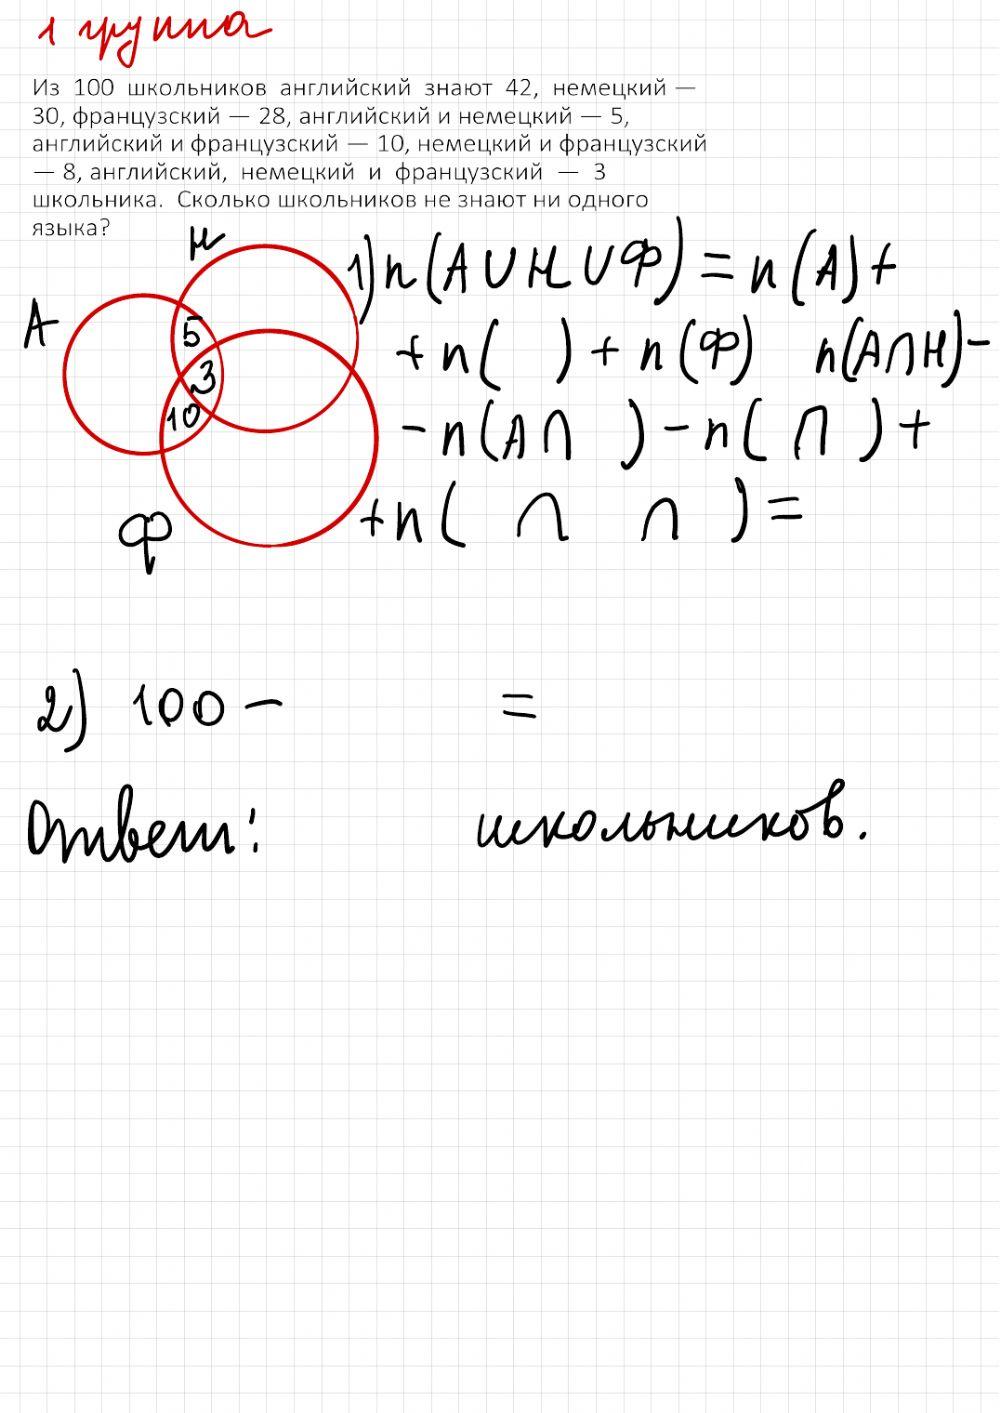 1 группа
Из 100 школьников английский знают 42, немецкий —
30, французский — 28, английский и немецкий — 5,
английский и французский — 10, немецкий и французский
— 8, английский, немецкий и французский — 3
школьника. Сколько школьников не знают ни одного
языка?
Н
А
5
3
10
Ф
1) n(A∪H∪Ф) = n(A)+
+n( ) + n(Ф) n(A∩H)-
-n(A∩ ) - n( ∩ )+
+n( ∩ ∩ )=
2) 100 - =
Ответ: школьников.